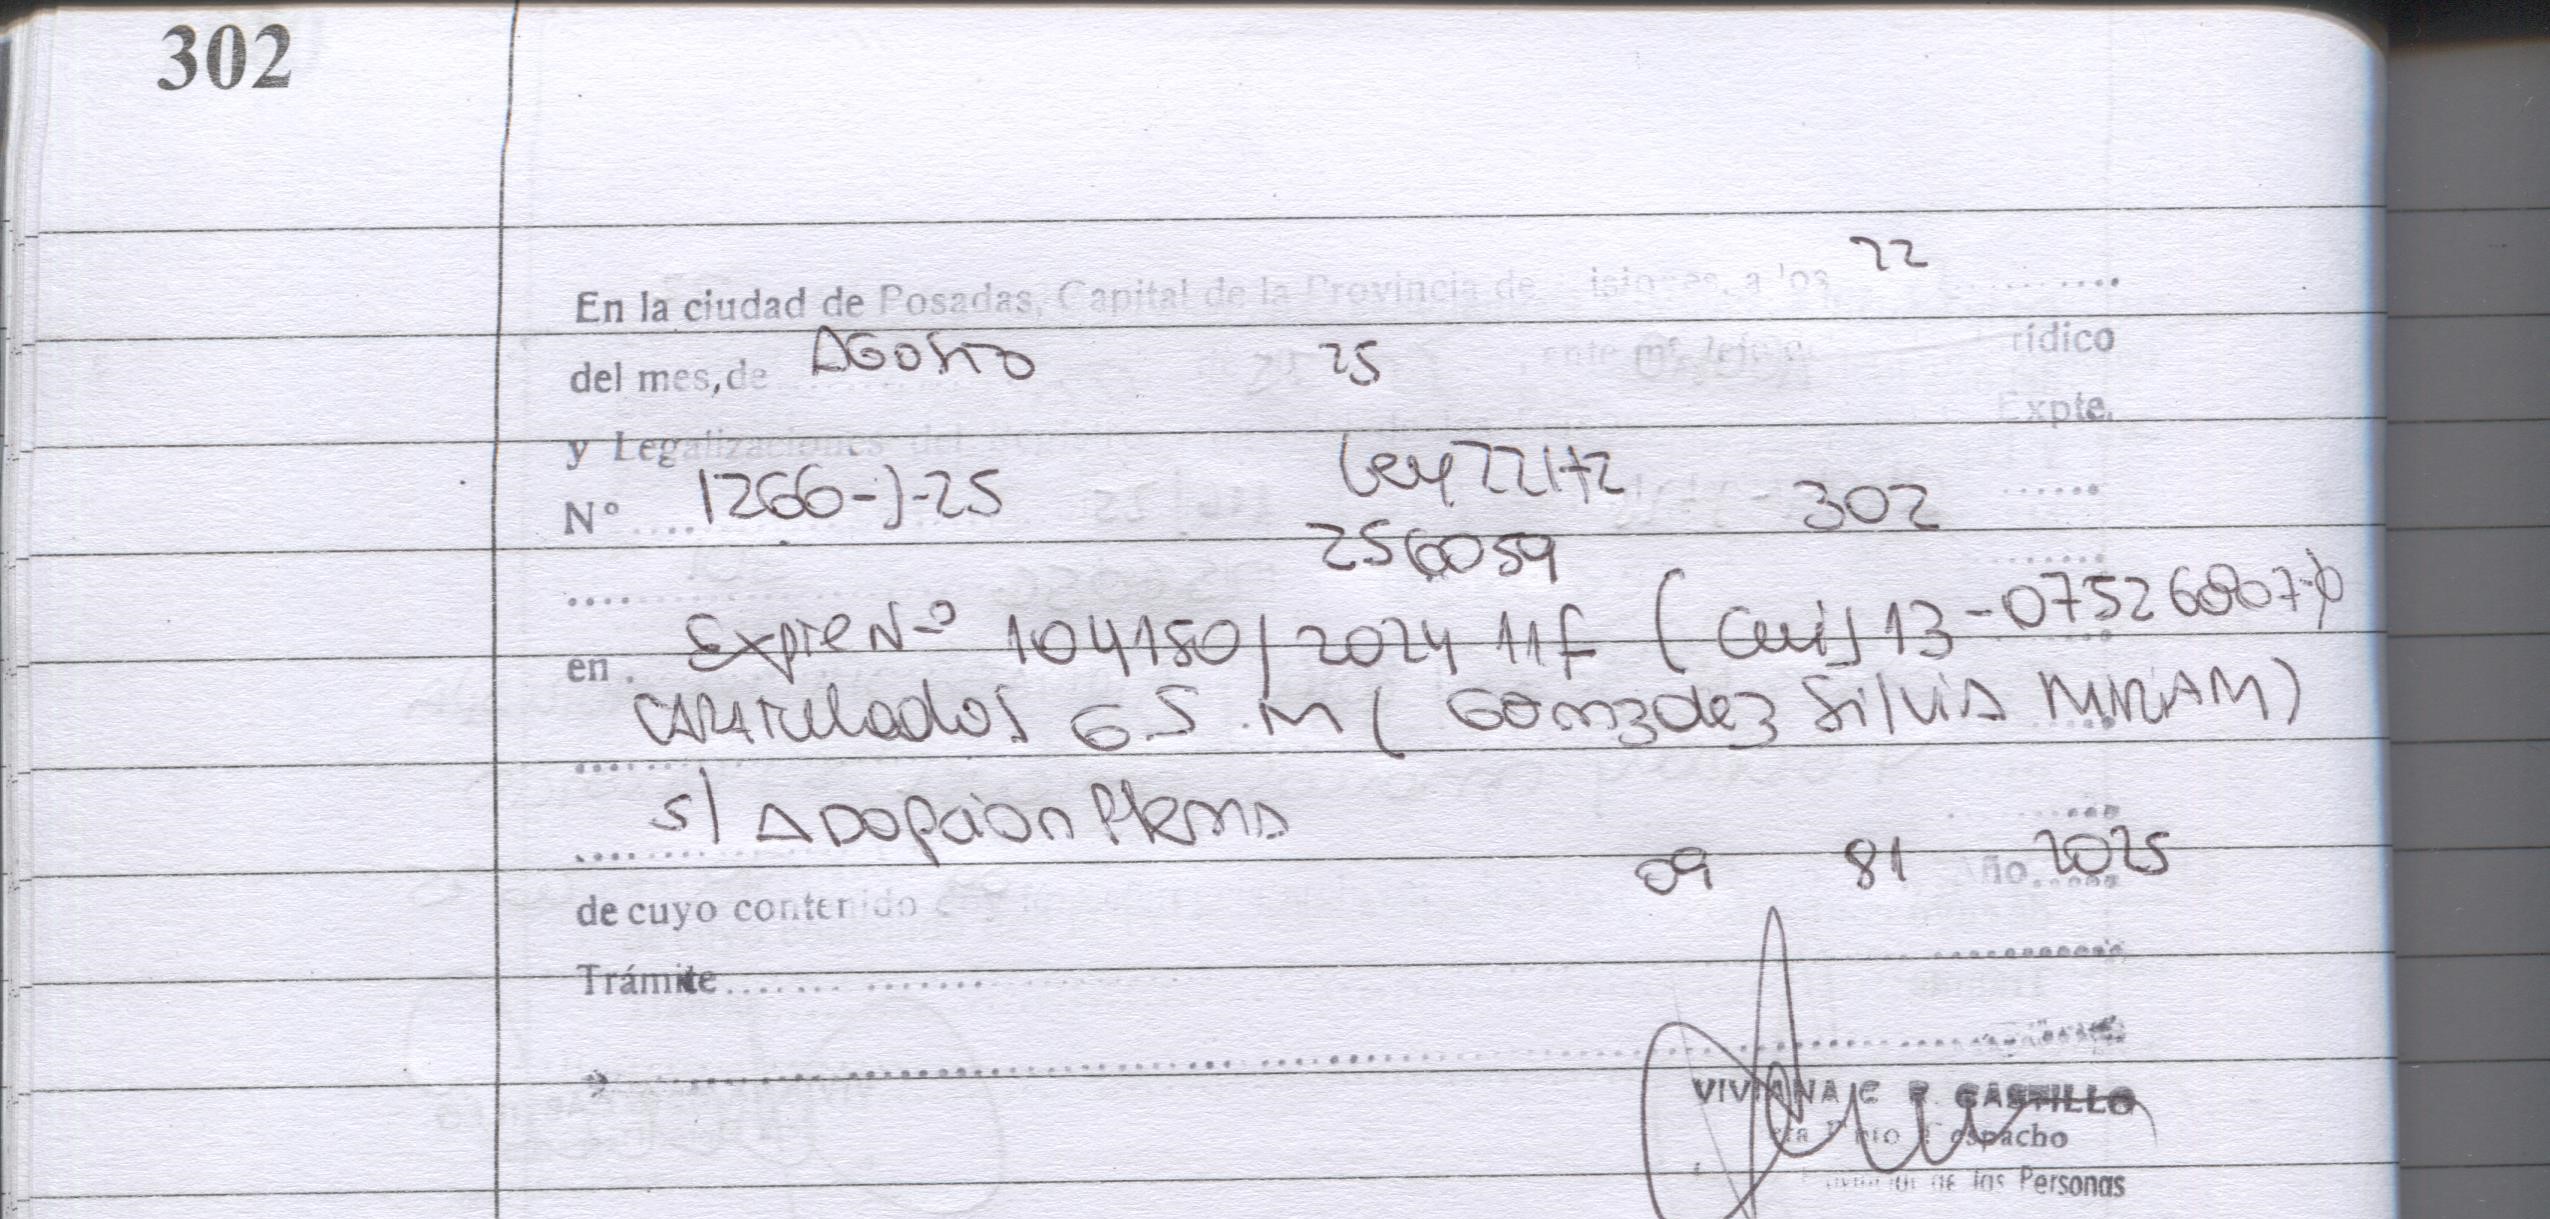 302
En la ciudad de Posadas, Capital de la Provincia de isiones, a los 22
del mes, de Agosto 25 ante mí, Jefe rídico
y Legalizaciones del Expte.
N° 1266-J-25 Ley 22172 302
256059
en Expte N-º 104180/2024 11F (Cuij 13-07526807-
caratulados G S M (Gonzalez Silvia Miriam)
s/ Adopcion Plena
09 81 Año 2025
de cuyo contenido
Trámite
VIVIANA C. CASTILLO
Dpto Despacho
de las Personas